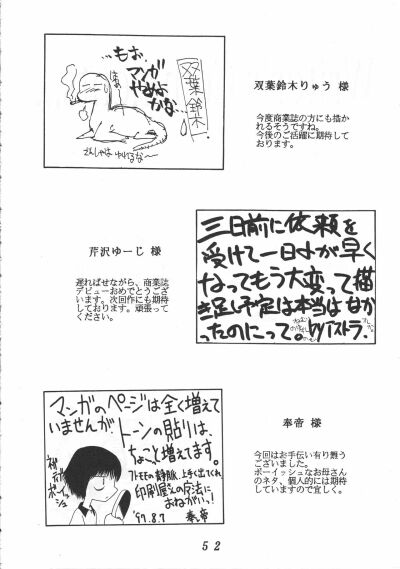 …もお、
マンガ
やめよ
かな…
双葉鈴木
さんしゃは ゆれるな〜
双葉鈴木りゅう 様
今度商業誌の方にも描か
れるそうですね。
今後のご活躍に期待して
おります。
芹沢ゆーじ 様
遅ればせながら、商業誌
デビューおめでとうござ
います。次回作にも期待
しております。頑張って
ください。
三日前に依頼を
受けて一日〆が早く
なってもう大変って描
き足し予定は本当はなか
ったのにって。byパストラ。
マンガのページは全く増えて
いませんが トーンの貼りは、
ちょこと増えてます。
フトモモの静脈、上手く出てくれ
印刷屋さんの方法に
おねがいっ!
'97.8.7
奉帝
ボーイッシュ
奉帝 様
今回はお手伝い有り難う
ございました。
ボーイッシュなお母さん
のネタ、個人的には期待
していますので宜しく。
52